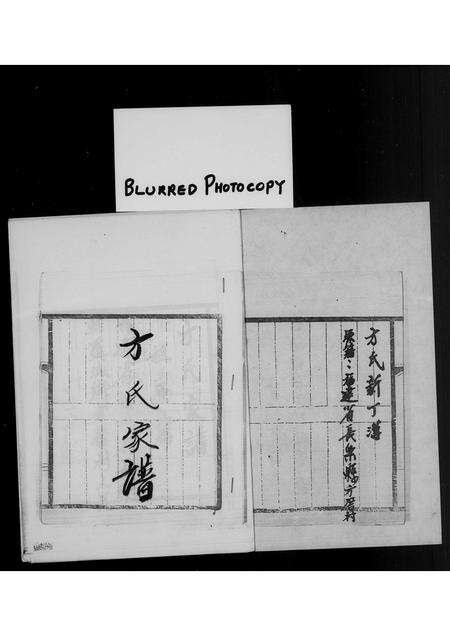 BLURRED PHOTOCOPY
方氏新丁簿
原籍：福建省長樂縣方厝村
方氏家譜